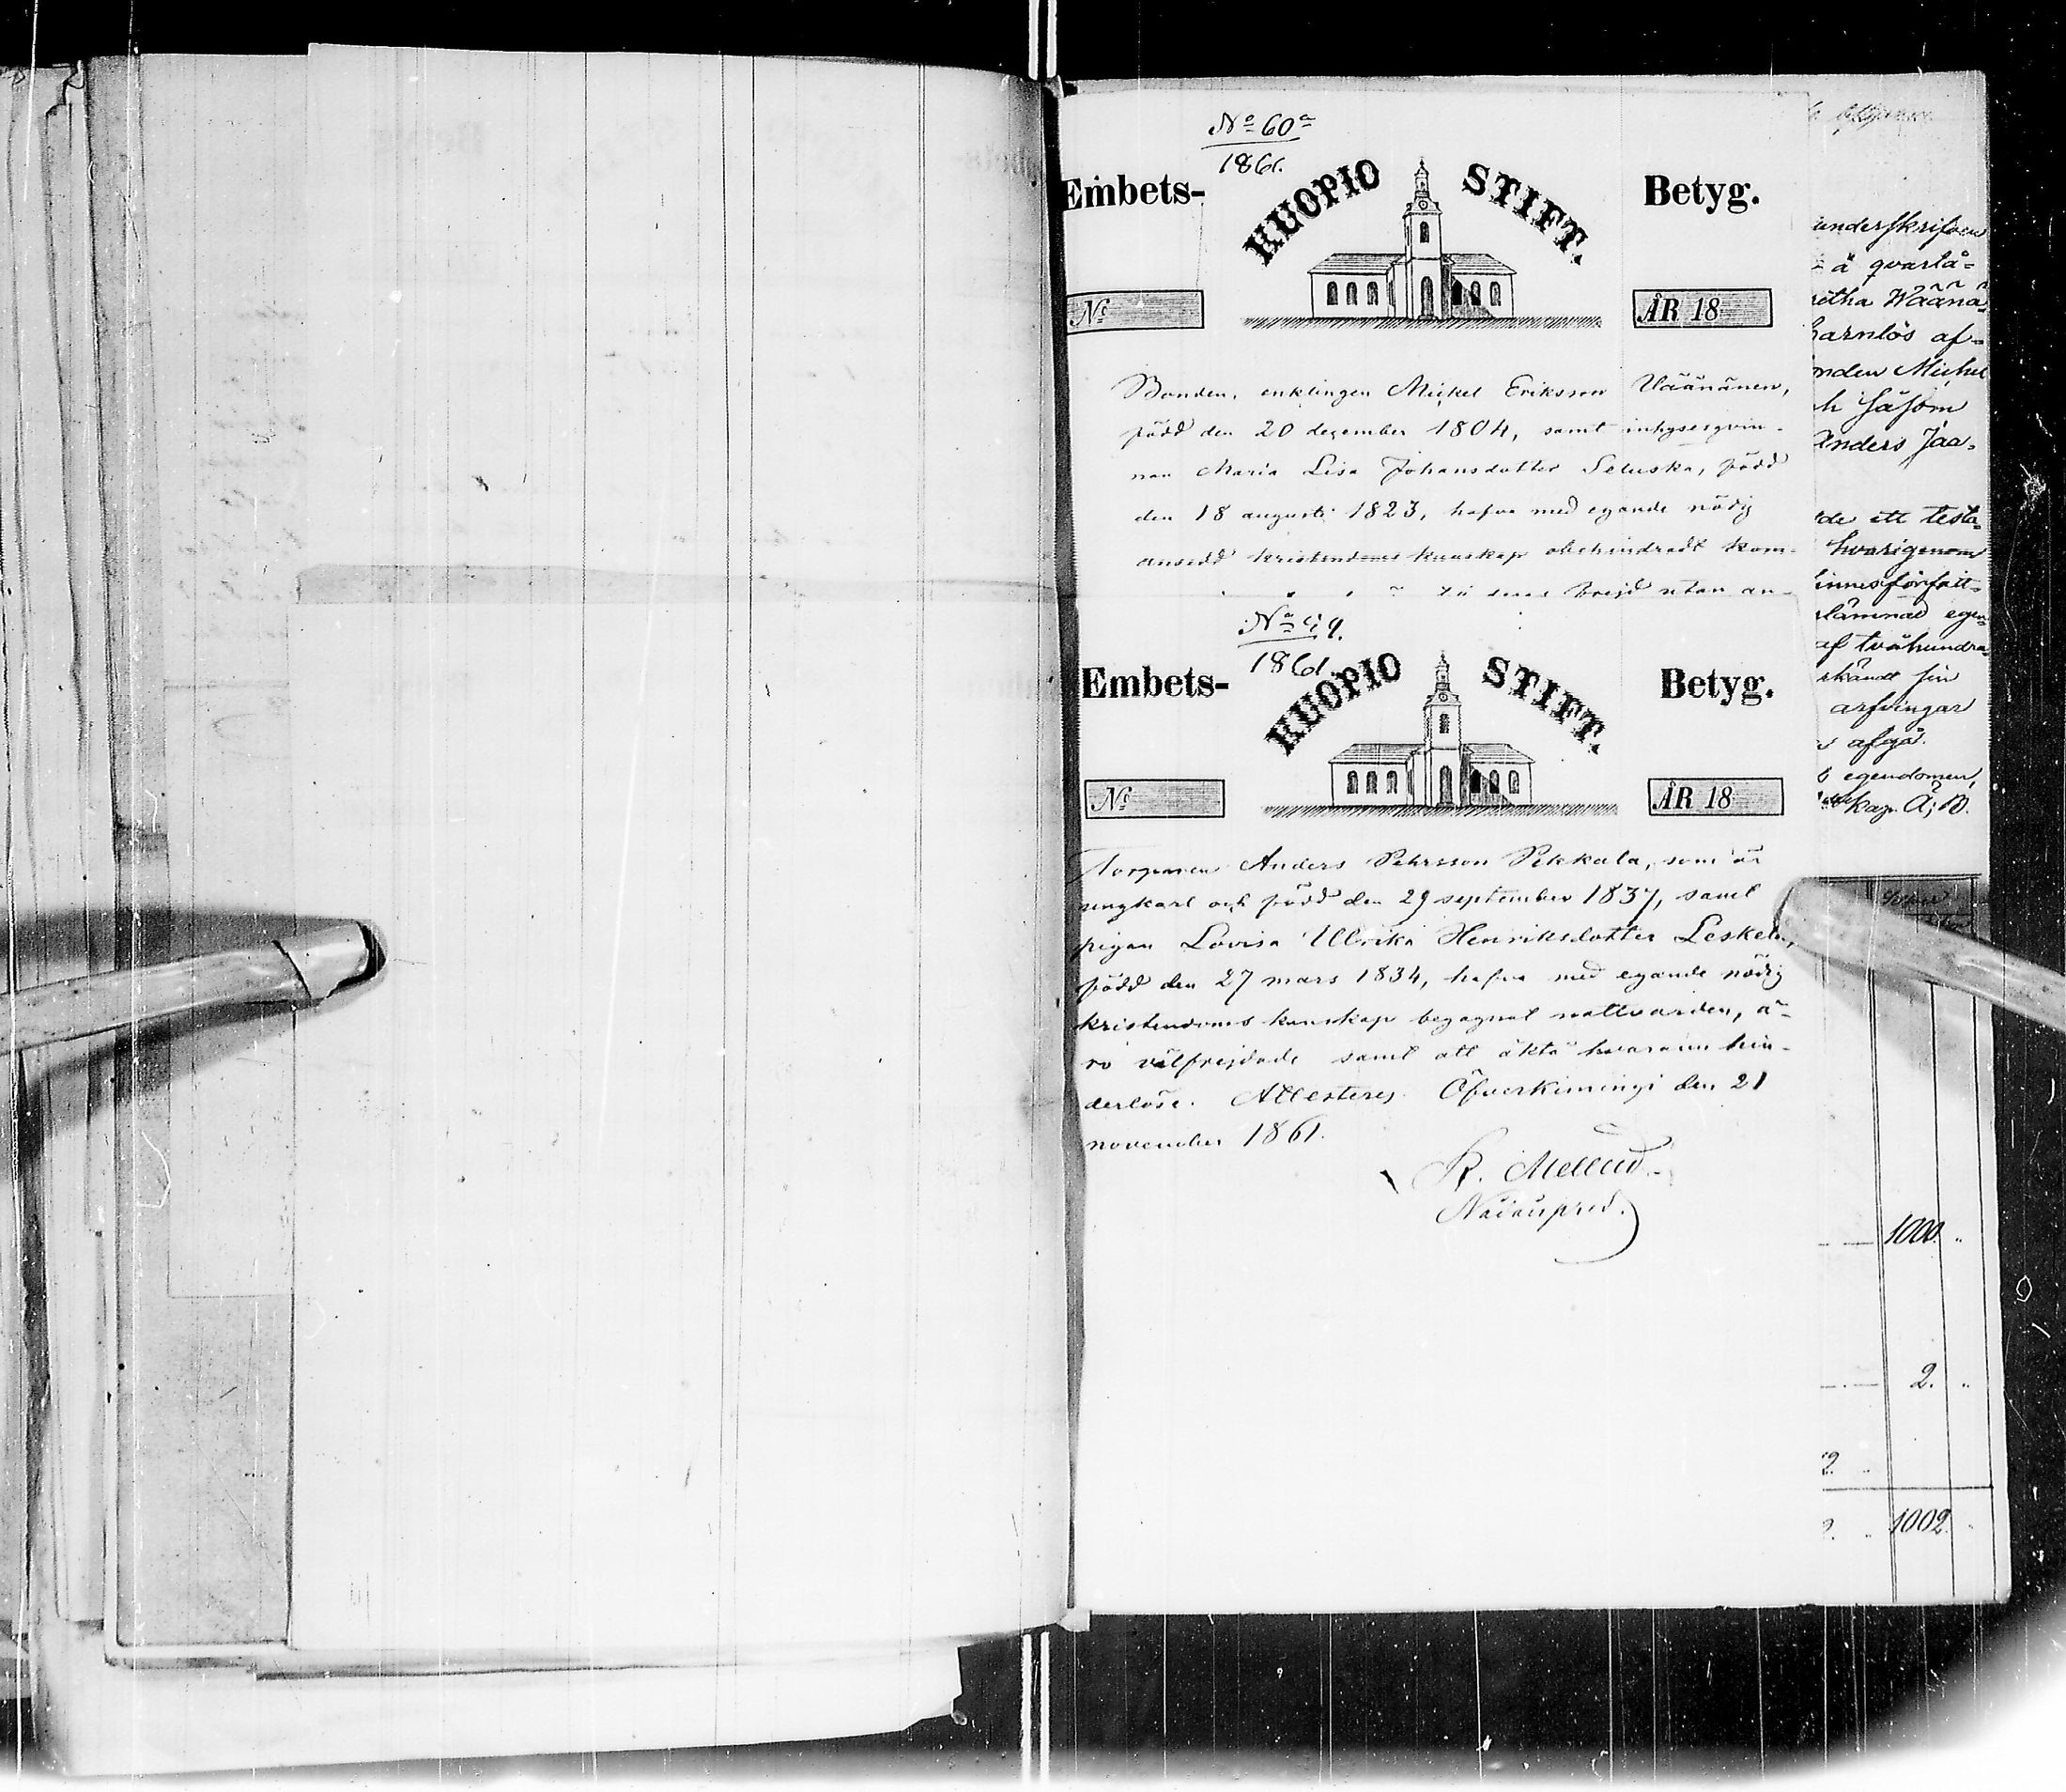 Nº 60ª
1861.
Embets- KUOPIO STIFT. Betyg.
Nº ÅR 18
Bonden, enklingen Mickel Eriksson Väänänen,
född den 20 december 1804, samt inhysesqvin-
nan Maria Lisa Johansdotter Seluska, född
den 18 augusti 1823, hafva med egande nödig
ansedd kristendoms kunskap obehindradt kom-
frejd utan an-
Nº 49.
1861
Embets- KUOPIO STIFT. Betyg.
Nº ÅR 18
Torparen Anders Pehrsson Pekkala, som är
ungkarl och född den 29 september 1837, samt
pigan Lovisa Ulrika Henriksdotter Leskelä,
född den 27 mars 1834, hafva med egande nödig
kristendoms kunskap begagnat nattvarden, ä-
ro välfrejdade samt att äkta hvarann hin-
derlöse. Attesteres. Öfverkimingi den 21
november 1861.
K. Mellid
underskrifven
å qvarlå-
retha Wäänä-
barnlös af-
onden Michel
h såsom
Anders Jaa-
de ett testa-
hvarigenom
innesförfatt-
lämnad egen-
af tvåhundra-
sin
arfvingar
afgå.
egendomen,
kap. Å, B.
1000.
2.
2.
1002.